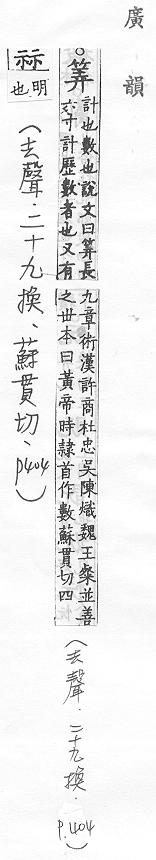 廣韻
○筭計也數也說文曰筭長
六寸計歷數者也又有
九章術漢許商杜忠吳陳熾魏王粲並善
之世本曰黃帝時隷首作數蘇貫切四
(去聲.二十九換.P.404)
祘明
也
(去聲.二十九換、蘇貫切、P404)